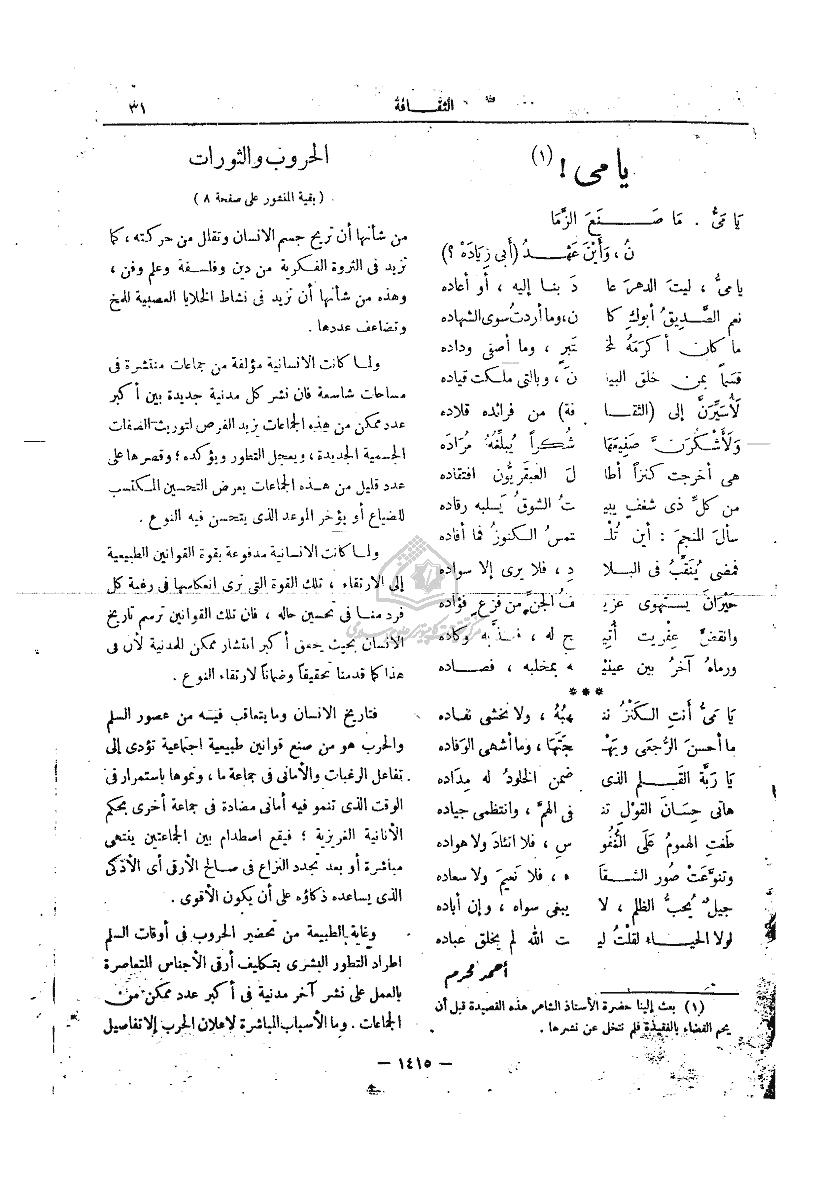 ٣١
الثقافة
يا مى ! (١)
يَا مَىُّ . مَا صَنَعَ الزَّمَا
نُ ، وَأَيْنَ عَهْدُ (أَبى زِيَادَهْ ؟)
يا مىُّ ، ليتَ الدهرَ عا دَ بنا إليه ، أو أعاده
نعم الصَّديقُ أبوكِ كا ن ، وما أردتُ سوى الشهاده
ما كان أكرمَهُ لمخ تَبرٍ ، وما أصفى وداده
قسَماً بمن خلق البيا نَ ، وبالتى ملكت قياده
لَأُسَيِّرَنَّ إلى (الثقا فة) من فرائده قلاده
وَلَأَشْكُرَنَّ صَنِيعَهَا شُكراً يُبلِّغُهُ مُرَادَه
هى أخرجت كنزاً أطا لَ العبقريُّون افتقاده
من كلِّ ذى شغفٍ يبيـ تُ الشوقُ يسلبه رقاده
سألَ المنجمَ : أين تُلْـ تمسُ الكنوزُ فما أفاده
فمضى يُنَقِّبُ فى البلا دِ ، فلا يرى إلا سواده
حَيْرَانَ يستهوى عزيـ فُ الجنِّ من فزعٍ فؤاده
وانقضَّ عِفريت أُتيـ ح له ، وكاده
ورماهُ آخرُ بين عينيْـ ه بمخلبه ، فصاده
***
يَا مَىُّ أنتِ الكَنْزُ ننـ هبُهُ ، ولا نخشى نفاده
ما أحسنَ الرُّجعَى وبَهْـ جَتَهَا ، وما أشهى الوفاده
يَا رَبَّةَ القَلَمِ الذى ضمن الخلودُ له مِدَاده
هاتى حِسَانَ القوْلِ تنـ فى الهمَّ ، وانتظمى جياده
طغتِ الهمومُ عَلَى النُّفُو سِ ، فلا اتئادَ ولا هواده
وتنوعَتْ صُور الشقا ء ، فلا نَعيمَ ولا سعاده
جيلٌ يُحبُّ الظلم ، لا يبغى سواه ، وإن أباده
لولا الحياء لقلْتُ ليـ ت الله لم يخلق عباده
أحمد محرم
(١) بعث إلينا حضرة الأستاذ الشاعر هذه القصيدة قبل أن
يحم القضاء بالفقيدة فلم نتخل عن نشرها .
الحروب والثورات
( بقية المنشور على صفحة ٨ )
من شأنها أن تريح جسم الانسان وتقلل من حركته ، كما
تزيد فى الثروة الفكرية من دين وفلسفة وعلم وفن ،
وهذه من شأنها أن تزيد فى نشاط الخلايا العصبية للمخ
وتضاعف عددها .
ولما كانت الانسانية مؤلفة من جماعات منتشرة فى
مساحات شاسعة فان نشر كل مدنية جديدة بين أكبر
عدد ممكن من هذه الجماعات يزيد الفرص لتوريث الصفات
الجسمية الجديدة ، ويعجل التطور ويؤكده ؛ وقصرها على
عدد قليل من هذه الجماعات يعرض التحسين المكتسب
للضياع أو يؤخر الموعد الذى يتحسن فيه النوع .
ولما كانت الانسانية مدفوعة بقوة القوانين الطبيعية
إلى الارتقاء ، تلك القوة التى نرى انعكاسها فى رغبة كل
فرد منا فى تحسين حاله ، فان تلك القوانين ترسم تاريخ
الانسان بحيث يحقق أكبر انتشار ممكن للمدنية لأن فى
هذا كما قدمنا تحقيقاً وضماناً لارتقاء النوع .
فتاريخ الانسان وما يتعاقب فيه من عصور السلم
والحرب هو من صنع قوانين طبيعية اجتماعية تؤدى إلى
تفاعل الرغبات والأمانى فى جماعة ما ، ونموها باستمرار فى
الوقت الذى تنمو فيه أمانى مضادة فى جماعة أخرى بحكم
الأنانية الغريزية ؛ فيقع اصطدام بين الجماعتين ينتهى
مباشرة أو بعد تجدد النزاع فى صالح الأرقى أى الأذكى
الذى يساعده ذكاؤه على أن يكون الأقوى .
وغاية الطبيعة من تحضير الحروب فى أوقات السلم
اطراد التطور البشرى بتكليف أرقى الأجناس المتعاصرة
بالعمل على نشر آخر مدنية فى أكبر عدد ممكن من
الجماعات . وما الأسباب المباشرة لاعلان الحرب إلا تفاصيل
— ١٤١٥ —